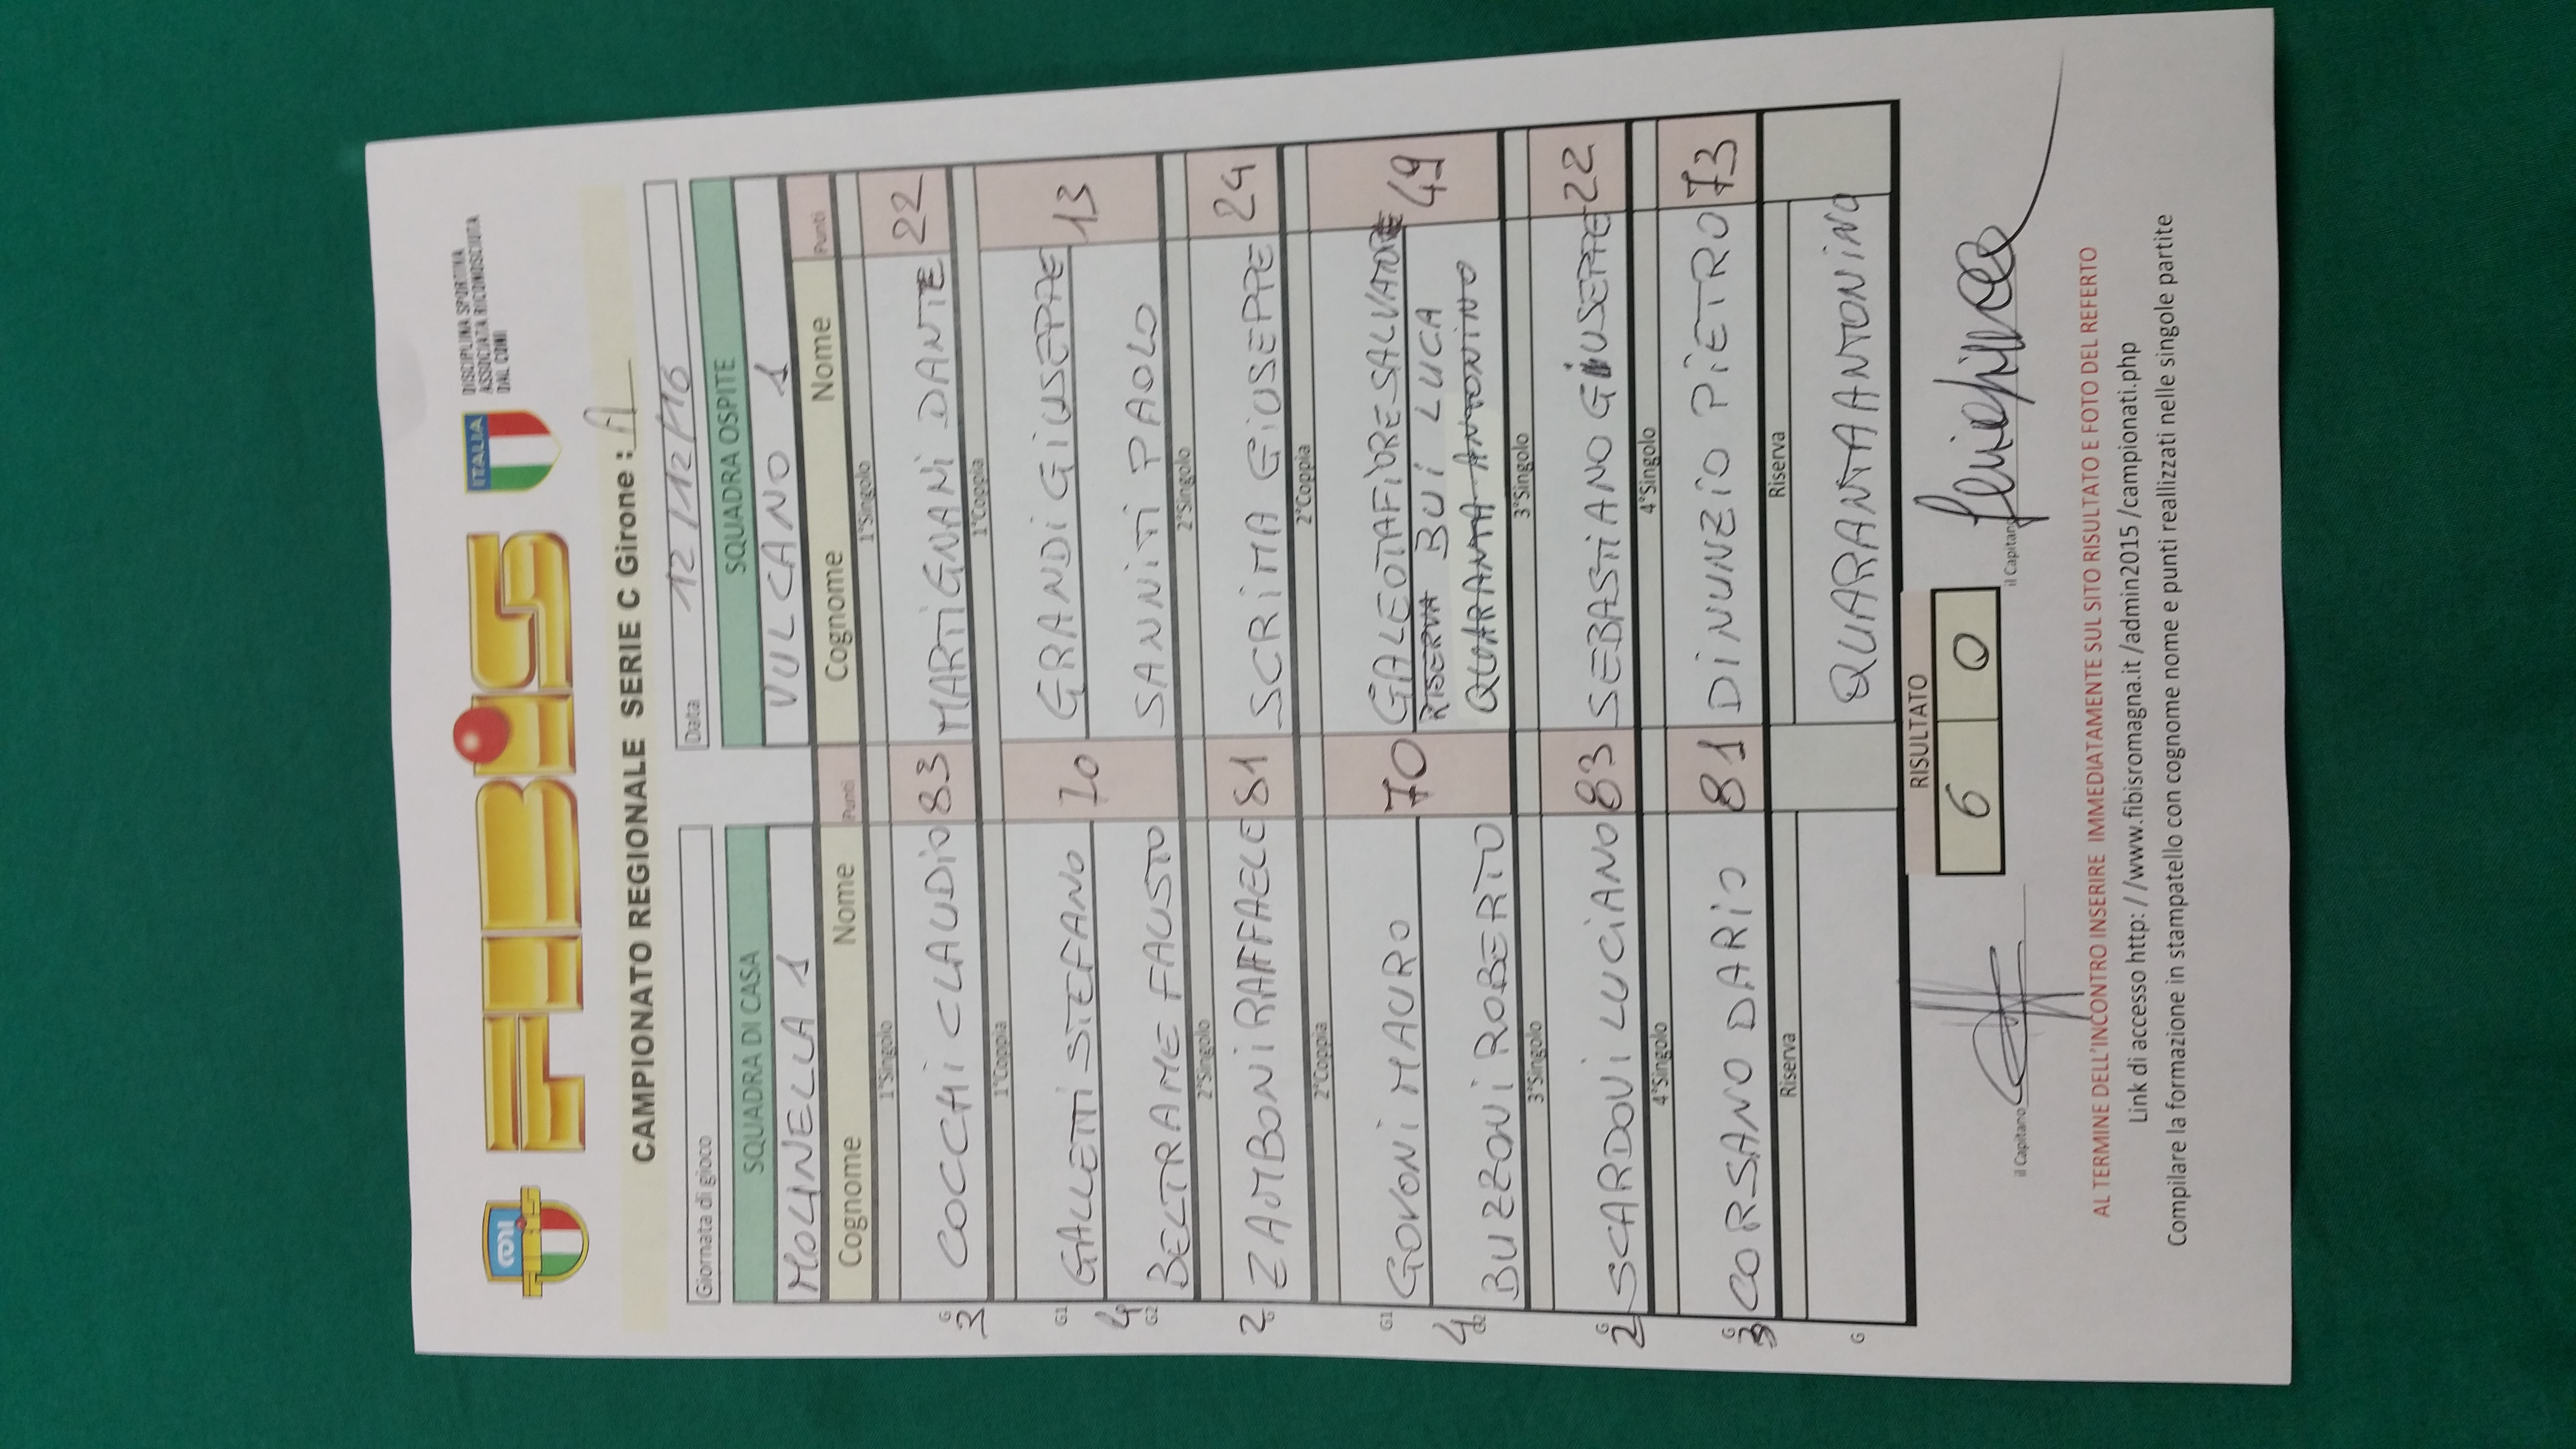 FIBiS
ITALIA
DISCIPLINA SPORTIVA
ASSOCIATA RICONOSCIUTA
DAL CONI
CAMPIONATO REGIONALE SERIE C Girone : A
Giornata di gioco
Data 12/12/16
SQUADRA DI CASA SQUADRA OSPITE
MOLINELLA 1 VULCANO 1
Cognome Nome Punti Cognome Nome Punti
1°Singolo 1°Singolo
G 3 COCCHI CLAUDIO 83 MARTIGNANI DANTE 22
1°Coppia 1°Coppia
G1 GALLETTI STEFANO 70 GRANDI GIUSEPPE 13
4 G2 BELTRAME FAUSTO SANNITI PAOLO
2°Singolo 2°Singolo
G 2 ZAMBONI RAFFAELE 81 SCRIMA GIUSEPPE 24
2°Coppia 2°Coppia
G1 GOVONI MAURO 70 GALEOTAFIORE SALVATORE 49
RISERVA BUI LUCA
4 G2 BUZZONI ROBERTO QUARANTA ANTONINO
3°Singolo 3°Singolo
G 2 SCARDOVI LUCIANO 83 SEBASTIANO GIUSEPPE 22
4°Singolo 4°Singolo
G 3 CORSANO DARIO 81 DINUNZIO PIETRO 73
Riserva Riserva
G QUARANTA ANTONINO
RISULTATO
6 0
il Capitano il Capitano
AL TERMINE DELL'INCONTRO INSERIRE IMMEDIATAMENTE SUL SITO RISULTATO E FOTO DEL REFERTO
Link di accesso http: //www.fibisromagna.it /admin2015 /campionati.php
Compilare la formazione in stampatello con cognome nome e punti reallizzati nelle singole partite